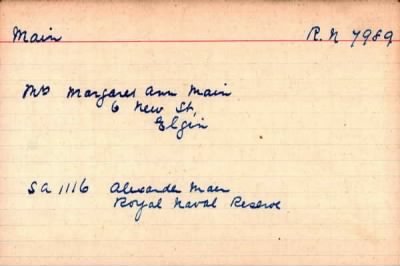 Main R.N 7989
Mrs Margaret Ann Main
6 New St,
Elgin
SA 1116 Alexander Main
Royal Naval Reserve